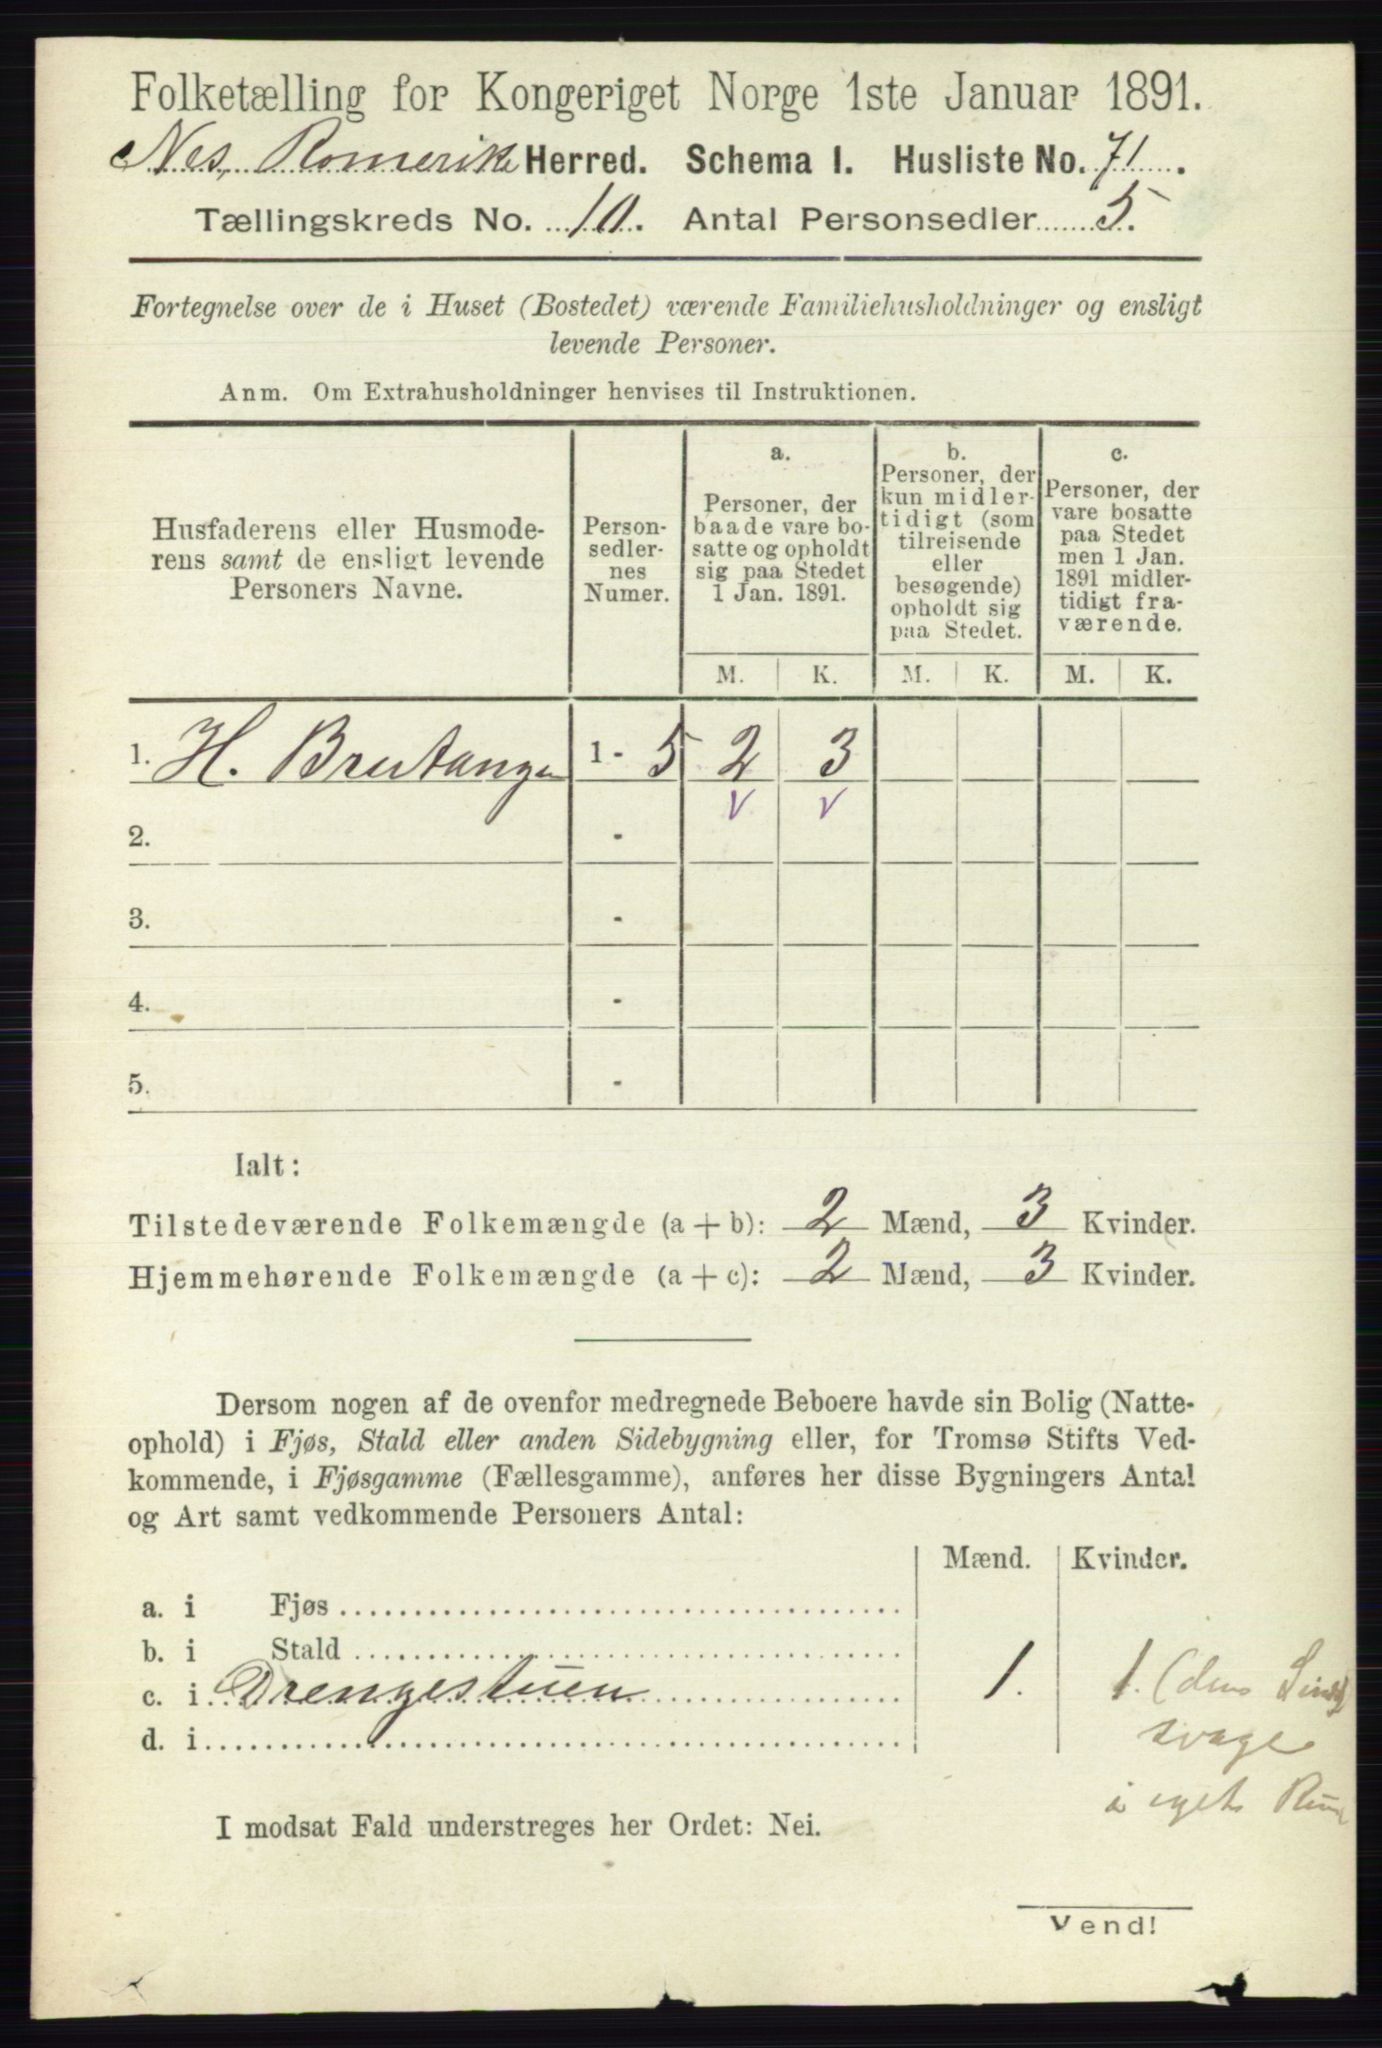 Folketælling for Kongeriget Norge 1ste Januar 1891.
Nes, Romerike Herred. Schema I. Husliste No. 71.
Tællingskreds No. 10. Antal Personsedler 5.
Fortegnelse over de i Huset (Bostedet) værende Familiehusholdninger og ensligt
levende Personer.
Anm. Om Extrahusholdninger henvises til Instruktionen.
Husfaderens eller Husmode-
rens samt de ensligt levende
Personers Navne.
Person-
sedler-
nes
Numer.
a.
Personer, der
baade vare bo-
satte og opholdt
sig paa Stedet
1 Jan. 1891.
b.
Personer, der
kun midler-
tidigt (som
tilreisende
eller
besøgende)
opholdt sig
paa Stedet.
c.
Personer, der
vare bosatte
paa Stedet
men 1 Jan.
1891 midler-
tidigt fra-
værende.
M. K. M. K. M. K.
1. H. Brutangen 1 - 5 2 3
2. -
3. -
4. -
5. -
Ialt:
Tilstedeværende Folkemængde (a + b): 2 Mænd, 3 Kvinder.
Hjemmehørende Folkemængde (a + c): 2 Mænd, 3 Kvinder.
Dersom nogen af de ovenfor medregnede Beboere havde sin Bolig (Natte-
ophold) i Fjøs, Stald eller anden Sidebygning eller, for Tromsø Stifts Ved-
kommende, i Fjøsgamme (Fællesgamme), anføres her disse Bygningers Antal
og Art samt vedkommende Personers Antal:
Mænd. Kvinder.
a. i Fjøs
b. i Stald
c. i Drengestuen 1. 1. (den
svage
d. i
i eget
I modsat Fald understreges her Ordet: Nei.
Vend!